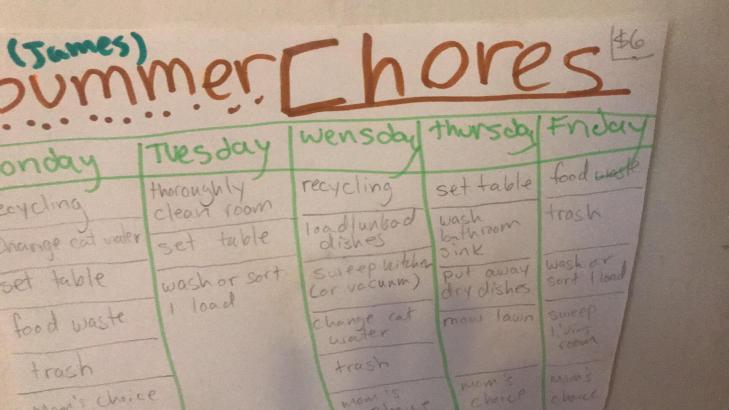 (James)
Summer Chores
$6
onday
Tuesday
Wensday
Thursday
Friday
ecycling
Change cat water
set table
food waste
trash
Mom's choice
thoroughly
clean room
set table
wash or sort
1 load
recycling
load/unload
dishes
sweep kitchen
(or vacuum)
change cat
water
trash
mom's
set table
wash
bathroom
sink
put away
dry dishes
mow lawn
mom's
choice
food waste
trash
wash or
sort 1 load
sweep
living
room
mom's
choice